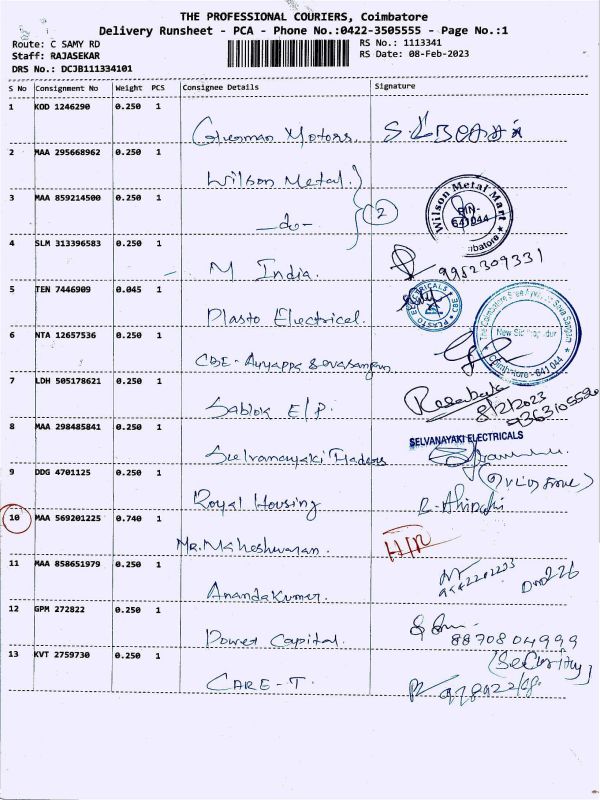 THE PROFESSIONAL COURIERS, Coimbatore
Delivery Runsheet - PCA - Phone No.:0422-3505555 - Page No.:1
Route: C SAMY RD
RS No.: 1113341
Staff: RAJASEKAR
RS Date: 08-Feb-2023
DRS No.: DCJB111334101
S No Consignment No Weight PCS Consignee Details Signature
1 KOD 1246290 0.250 1
Motors.
2 MAA 295668962 0.250 1
Wilson Metal.
3 MAA 859214500 0.250 1
-do- 2
Wilson Metal Mart
PIN-
641 044
4 SLM 313396583 0.250 1
M India. 9952309331
5 TEN 7446909 0.045 1
Plasto Electrical.
PLASTO ELECTRICALS CBE
6 NTA 12657536 0.250 1
CBE - Ayyappa Sevasangam
New Siddhapudur
Coimbatore - 641 044
7 LDH 505178621 0.250 1
Sablok E/P.
8/2/2023
8 MAA 298485841 0.250 1
SELVANAYAKI ELECTRICALS
Selvanayaki Traders
9 DDG 4701125 0.250 1
Royal Housing
10 MAA 569201225 0.740 1
Mr. Maheshwaran.
11 MAA 858651979 0.250 1
Anandakumar.
12 GPM 272822 0.250 1
Power Capital. 8870804999
13 KVT 2759730 0.250 1
(Security)
CARE - T.